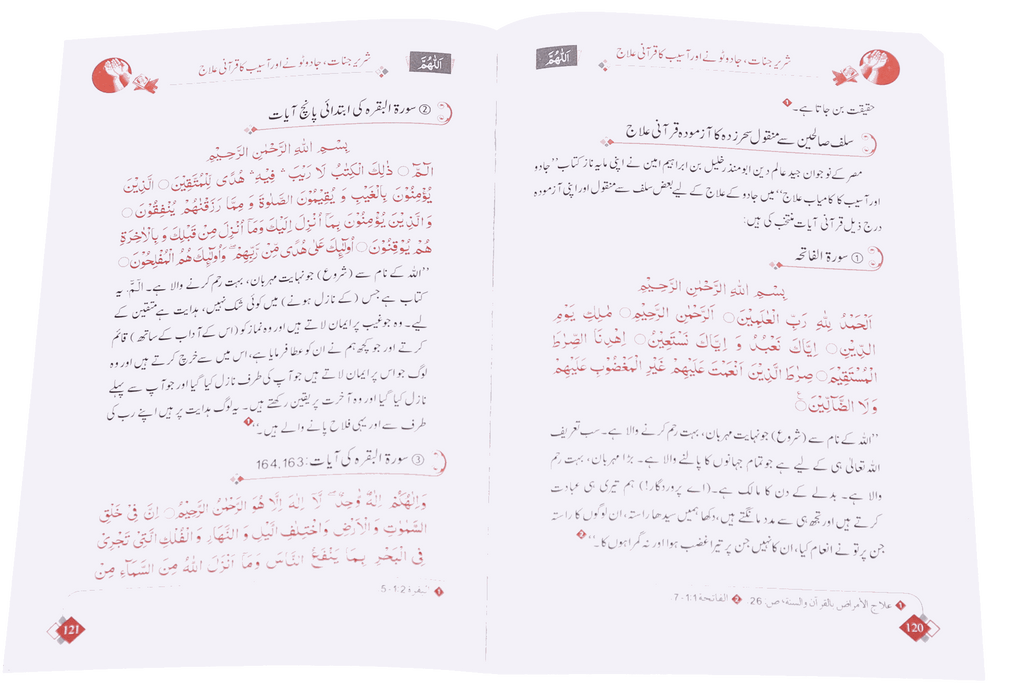 شریر جنات، جادو ٹونے اور آسیب کا قرآنی علاج
اَللّٰهُمَّ
حقیقت بن جاتا ہے۔ ❶
سلف صالحین سے منقول سحر زدہ کا آزمودہ قرآنی علاج
مصر کے نوجوان جید عالم دین ابومنذر خلیل بن ابراہیم امین نے اپنی مایہ ناز کتاب ’’جادو
اور آسیب کا کامیاب علاج‘‘ میں جادو کے علاج کے لیے بعض سلف سے منقول اور اپنی آزمودہ
درج ذیل قرآنی آیات منتخب کی ہیں:
① سورۃ الفاتحہ
بِسْمِ اللهِ الرَّحْمٰنِ الرَّحِيْمِ
اَلْحَمْدُ لِلّٰهِ رَبِّ الْعٰلَمِيْنَ۝ اَلرَّحْمٰنِ الرَّحِيْمِ۝ مٰلِكِ يَوْمِ
الدِّيْنِ۝ اِيَّاكَ نَعْبُدُ وَ اِيَّاكَ نَسْتَعِيْنُ۝ اِهْدِنَا الصِّرَاطَ
الْمُسْتَقِيْمَ۝ صِرَاطَ الَّذِيْنَ اَنْعَمْتَ عَلَيْهِمْ غَيْرِ الْمَغْضُوْبِ عَلَيْهِمْ
وَلَا الضَّآلِّيْنَ۝
’’اللہ کے نام سے (شروع) جو نہایت مہربان، بہت رحم کرنے والا ہے۔ سب تعریف
اللہ تعالیٰ ہی کے لیے ہے جو تمام جہانوں کا پالنے والا ہے۔ بڑا مہربان، بہت رحم
والا ہے۔ بدلے کے دن کا مالک ہے۔ (اے پروردگار!) ہم تیری ہی عبادت
کرتے ہیں اور تجھ ہی سے مدد مانگتے ہیں، دکھا ہمیں سیدھا راستہ، ان لوگوں کا راستہ
جن پر تو نے انعام کیا، ان کا نہیں جن پر تیرا غضب ہوا اور نہ گمراہوں کا۔‘‘ ❷
❶ علاج الأمراض بالقرآن والسنة، ص: 26. ❷ الفاتحة 1:1-7.
120
شریر جنات، جادو ٹونے اور آسیب کا قرآنی علاج
اَللّٰهُمَّ
② سورۃ البقرہ کی ابتدائی پانچ آیات
بِسْمِ اللهِ الرَّحْمٰنِ الرَّحِيْمِ
الٓمّٓ۝ ذٰلِكَ الْكِتٰبُ لَا رَيْبَ ۛ فِيْهِ ۛ هُدًى لِّلْمُتَّقِيْنَ۝ الَّذِيْنَ
يُؤْمِنُوْنَ بِالْغَيْبِ وَ يُقِيْمُوْنَ الصَّلٰوةَ وَ مِمَّا رَزَقْنٰهُمْ يُنْفِقُوْنَ۝
وَ الَّذِيْنَ يُؤْمِنُوْنَ بِمَآ اُنْزِلَ اِلَيْكَ وَمَآ اُنْزِلَ مِنْ قَبْلِكَ وَ بِالْاٰخِرَةِ
هُمْ يُوْقِنُوْنَ۝ اُولٰٓئِكَ عَلٰى هُدًى مِّنْ رَّبِّهِمْ ۙ وَاُولٰٓئِكَ هُمُ الْمُفْلِحُوْنَ۝
’’اللہ کے نام سے (شروع) جو نہایت مہربان، بہت رحم کرنے والا ہے۔ الٓمّٓ، یہ
کتاب ہے جس (کے نازل ہونے) میں کوئی شک نہیں، ہدایت ہے متقین کے
لیے۔ وہ جو غیب پر ایمان لاتے ہیں اور وہ نماز کو (اس کے آداب کے ساتھ) قائم
کرتے اور جو کچھ ہم نے ان کو عطا فرمایا ہے، اس میں سے خرچ کرتے ہیں اور وہ
لوگ جو اس پر ایمان لاتے ہیں جو آپ کی طرف نازل کیا گیا اور جو آپ سے پہلے
نازل کیا گیا اور وہ آخرت پر یقین رکھتے ہیں۔ یہ لوگ ہدایت پر ہیں اپنے رب کی
طرف سے اور یہی فلاح پانے والے ہیں۔‘‘ ❶
③ سورۃ البقرہ کی آیات: 164,163
وَاِلٰهُكُمْ اِلٰهٌ وَّاحِدٌ ۚ لَآ اِلٰهَ اِلَّا هُوَ الرَّحْمٰنُ الرَّحِيْمُ۝ اِنَّ فِيْ خَلْقِ
السَّمٰوٰتِ وَ الْاَرْضِ وَ اخْتِلَافِ الَّيْلِ وَ النَّهَارِ وَ الْفُلْكِ الَّتِيْ تَجْرِيْ
فِي الْبَحْرِ بِمَا يَنْفَعُ النَّاسَ وَمَآ اَنْزَلَ اللهُ مِنَ السَّمَآءِ مِنْ
❶ البقرة 1:2-5.
121